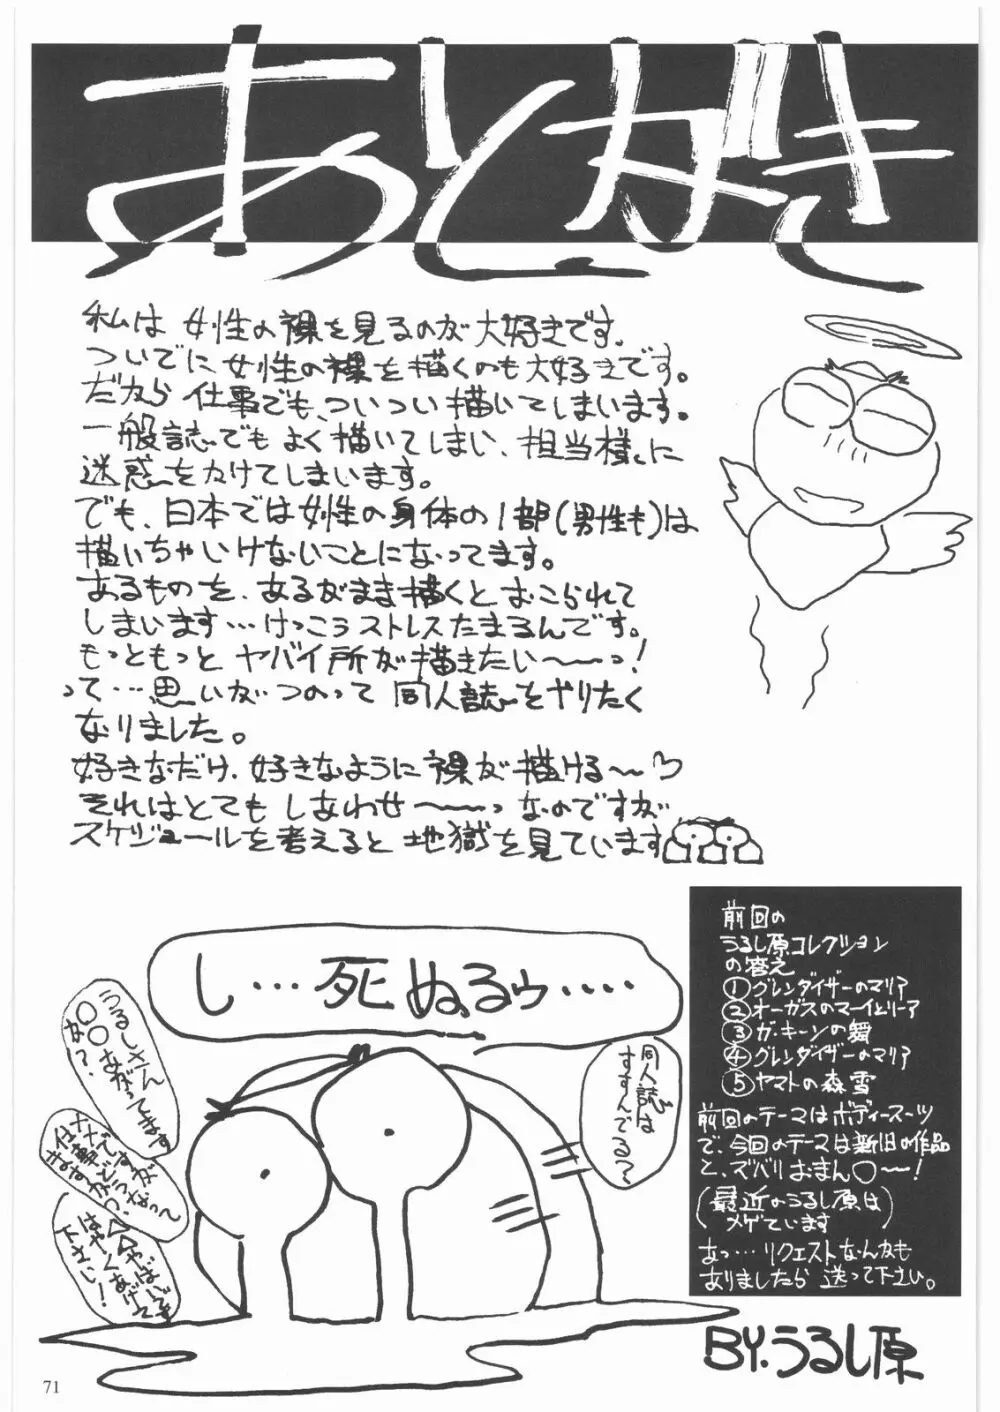 あとがき
私は女性の裸を見るのが大好きです。
ついでに女性の裸を描くのも大好きです。
だから仕事でも、ついつい描いてしまいます。
一般誌でもよく描いてしまい、担当様に
迷惑をかけてしまいます。
でも、日本では女性の身体の1部(男性も)は
描いちゃいけないことになってます。
あるものを、あるがまま描くとおこられて
しまいます…けっこうストレスたまるんです。
もっともっとヤバイ所が描きたい〜〜っ!
って…思いがつのって同人誌をやりたく
なりました。
好きなだけ、好きなように裸が描ける〜♡
それはとてもしあわせ〜〜っなのですが
スケジュールを考えると地獄を見ています
し…死ぬるゥ‥‥‥
うるしさん
〇〇あがってます
か?
同人誌は
すすんでる?
はやくあげて
下さい!
前回の
うるし原コレクション
の答え
①グレンダイザーのマリア
②オーガスのマーイとリーア
③ガ・キーンの舞
④グレンダイザーのマリア
⑤ヤマトの森雪
前回のテーマはボディースーツ
で、今回のテーマは新旧の作品
と、ズバリおまん〇〜!
(最近のうるし原は
メゲています)
あっ…リクエストなんかも
ありましたら送って下さい。
BY.うるし原
71